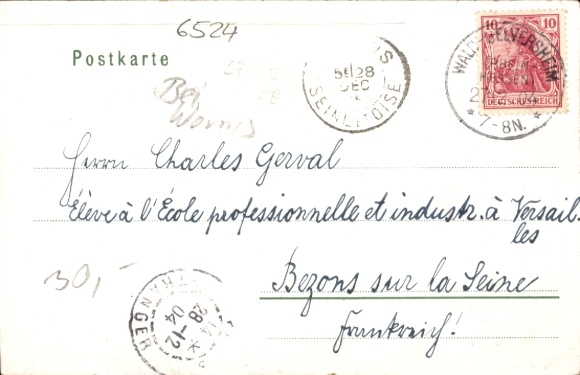 6524
10 10
Postkarte
DEUTSCHES REICH
5E 28
DEC
SEINE-ET-OISE
7-8N.
Bei
Worms
Herrn Charles Gerval
Élève à l'École professionnelle et industr. à Versail-
les
Bezons sur la Seine
Frankreich!
30,-
28-12
04